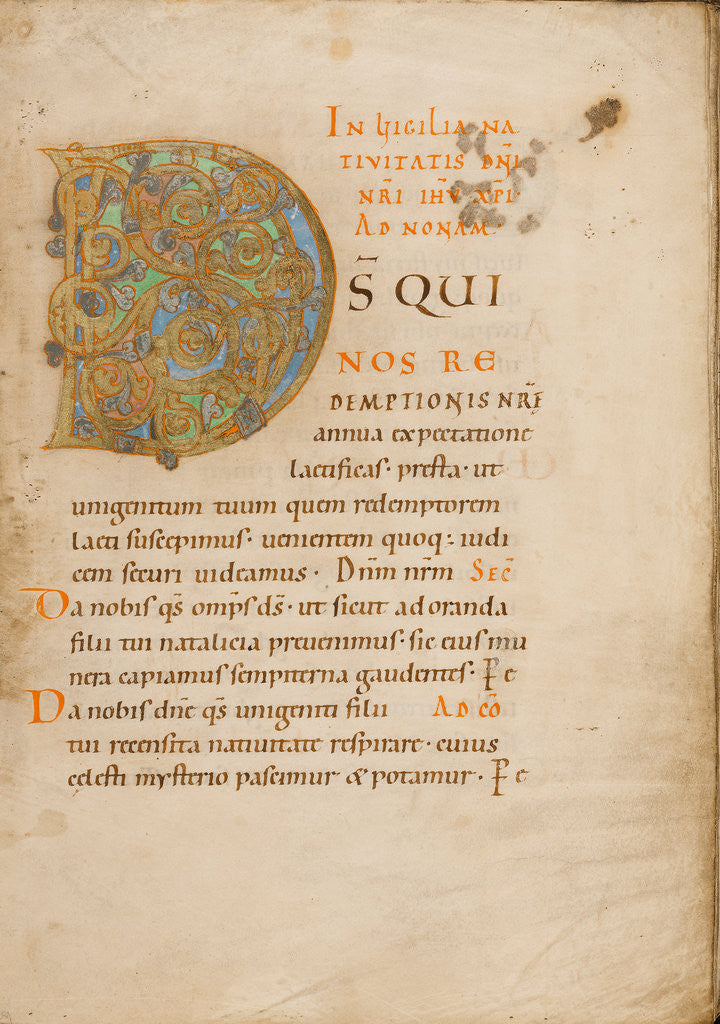 IN VIGILIA NA
TIVITATIS DÑI
NR̄I IHV̄ XP̄I
AD NONAM·
D S̄ QUI
NOS RE
DEMPTIONIS NRĘ̄
annua expectatione
laetificas· presta· ut
unigenitum tuum quem redemptorem
laeti suscepimus· uenientem quoq·: iudi
cem securi uideamus· Dn̄m nr̄m SEC̄
Da nobis q̄s omp̄s d̄s· ut sicut adoranda
filii tui natalicia preuenimus· sic eius mu
nera capiamus sempiterna gaudentes· P̱ e
Da nobis dn̄e q̄s unigeniti filii AD CŌ
tui recensita natiuitate respirare· cuius
celesti mysterio pascimur & potamur· P̱ e